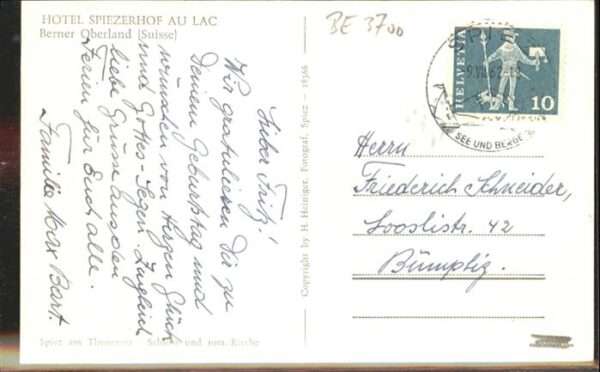 HOTEL SPIEZERHOF AU LAC
Berner Oberland (Suisse)
BE 3700
HELVETIA
10
SEE UND BERGE
Lieber Fritz!
Wir gratulieren Dir zu
Deinem Geburtstag und
wünschen von Herzen Glück
und Gottes-Segen. Zugleich
liebe Grüsse aus den
Ferien für Euch alle.
Familie Max Bart.
Copyright by H. Heiniger, Fotograf, Spiez - 18366
Herrn
Friederich Schneider,
Looslistr. 42
Bümpliz.
Spiez am Thunersee Schloss und rom. Kirche